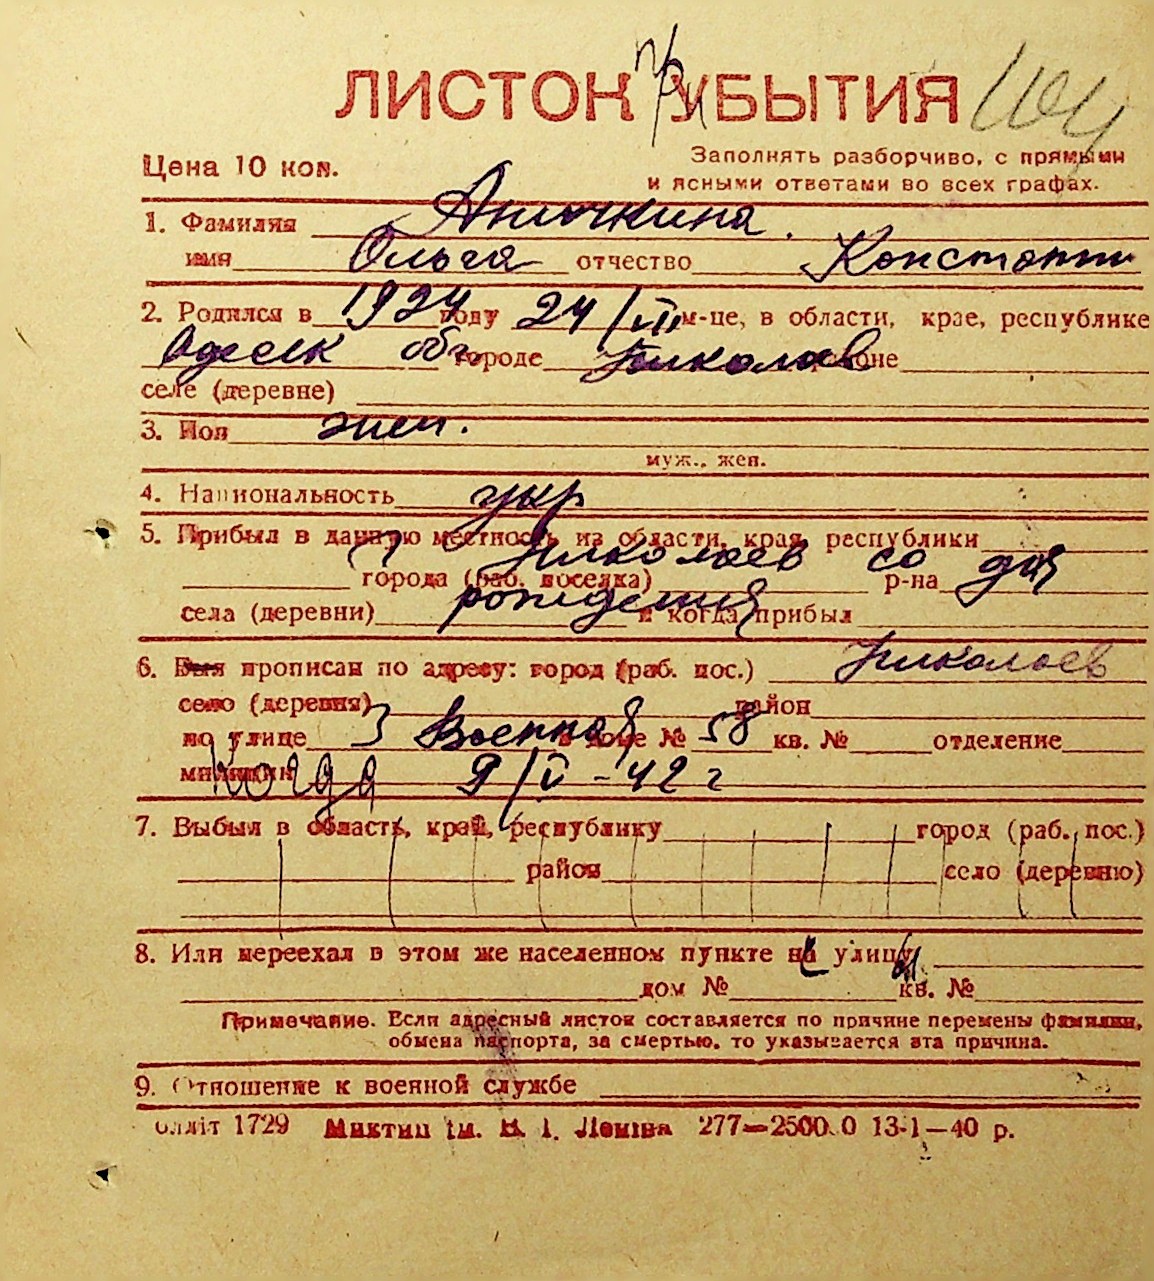 ЛИСТОК при УБЫТИЯ
Цена 10 коп.
Заполнять разборчиво, с прямыми
и ясными ответами во всех графах.
1. Фамилия Аничкина.
имя Ольга отчество Константи
2. Родился в 1924 году 24/III м-це, в области, крае, республике
Одесск обл. городе Николаев районе
селе (деревне)
3. Пол жен.
муж., жен.
4. Национальность укр
5. Прибыл в данную местность из области, края, республики
г Николаев со дня
города (раб. поселка) р-на
рождения
села (деревни) и когда прибыл
6. Был прописан по адресу: город (раб. пос.) Николаев
село (деревня) район
по улице 3 Военная в доме № 58 кв. № отделение
милиции когда 9/V-42 г
7. Выбыл в область, край, республику город (раб. пос.)
район село (деревню)
8. Или переехал в этом же населенном пункте на улицу
дом № кв. №
Примечание. Если адресный листок составляется по причине перемены фамилии,
обмена паспорта, за смертью, то указывается эта причина.
9. Отношение к военной службе
оллiт 1729 Миктип iм. В. I. Ленiна 277—2500.0 13-1—40 р.